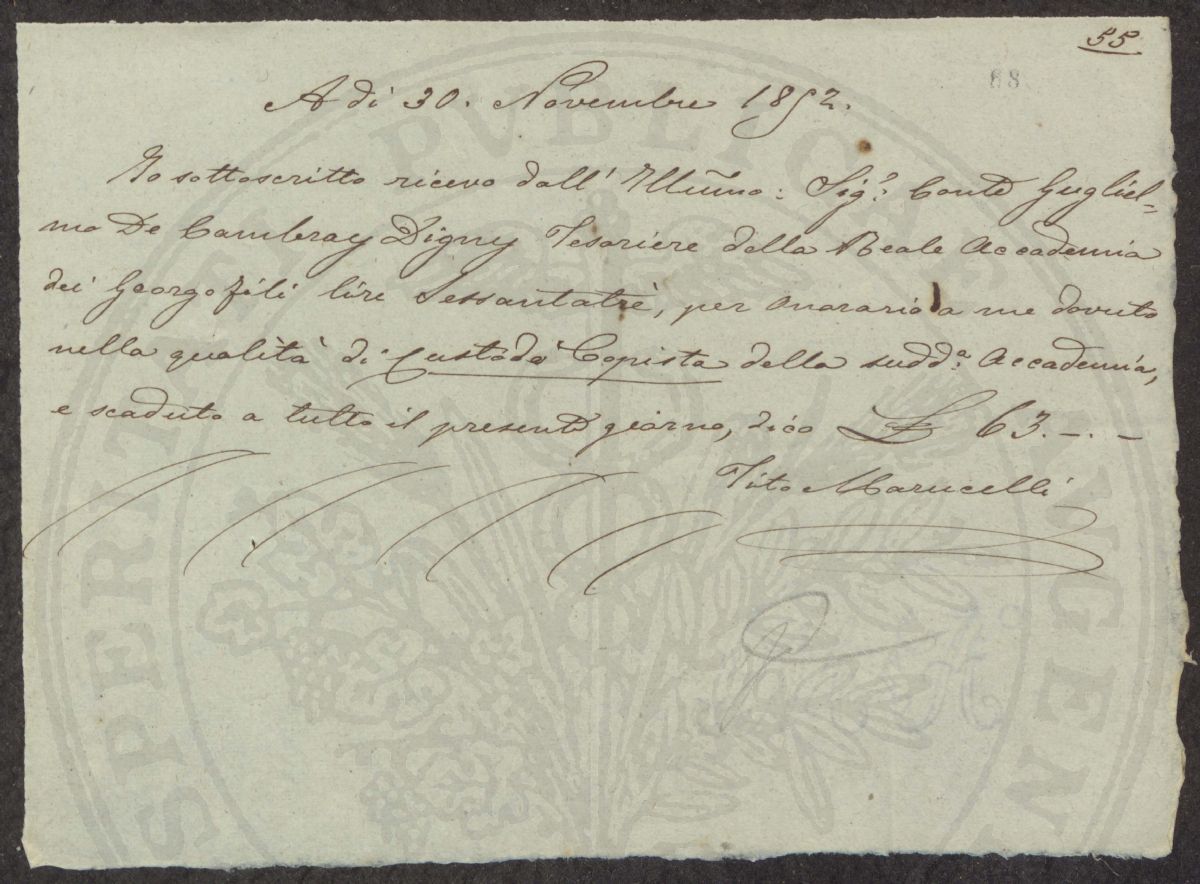 55
68
A dì 30. Novembre 1852.
Io sottoscritto ricevo dall' Illu͠mo: Sig.ʳ Conte Gugliel=
mo De Cambray Digny Tesoriere della Reale Accademia
dei Georgofili lire Sessantatrè, per onorario a me dovuto
nella qualità di Custode Copista della sudd.ᵃ Accademia,
e scaduto a tutto il presente giorno, dico £ 63.-.-
Tito Marucelli
PROSPERITATI PVBLICAE AVGENDAE